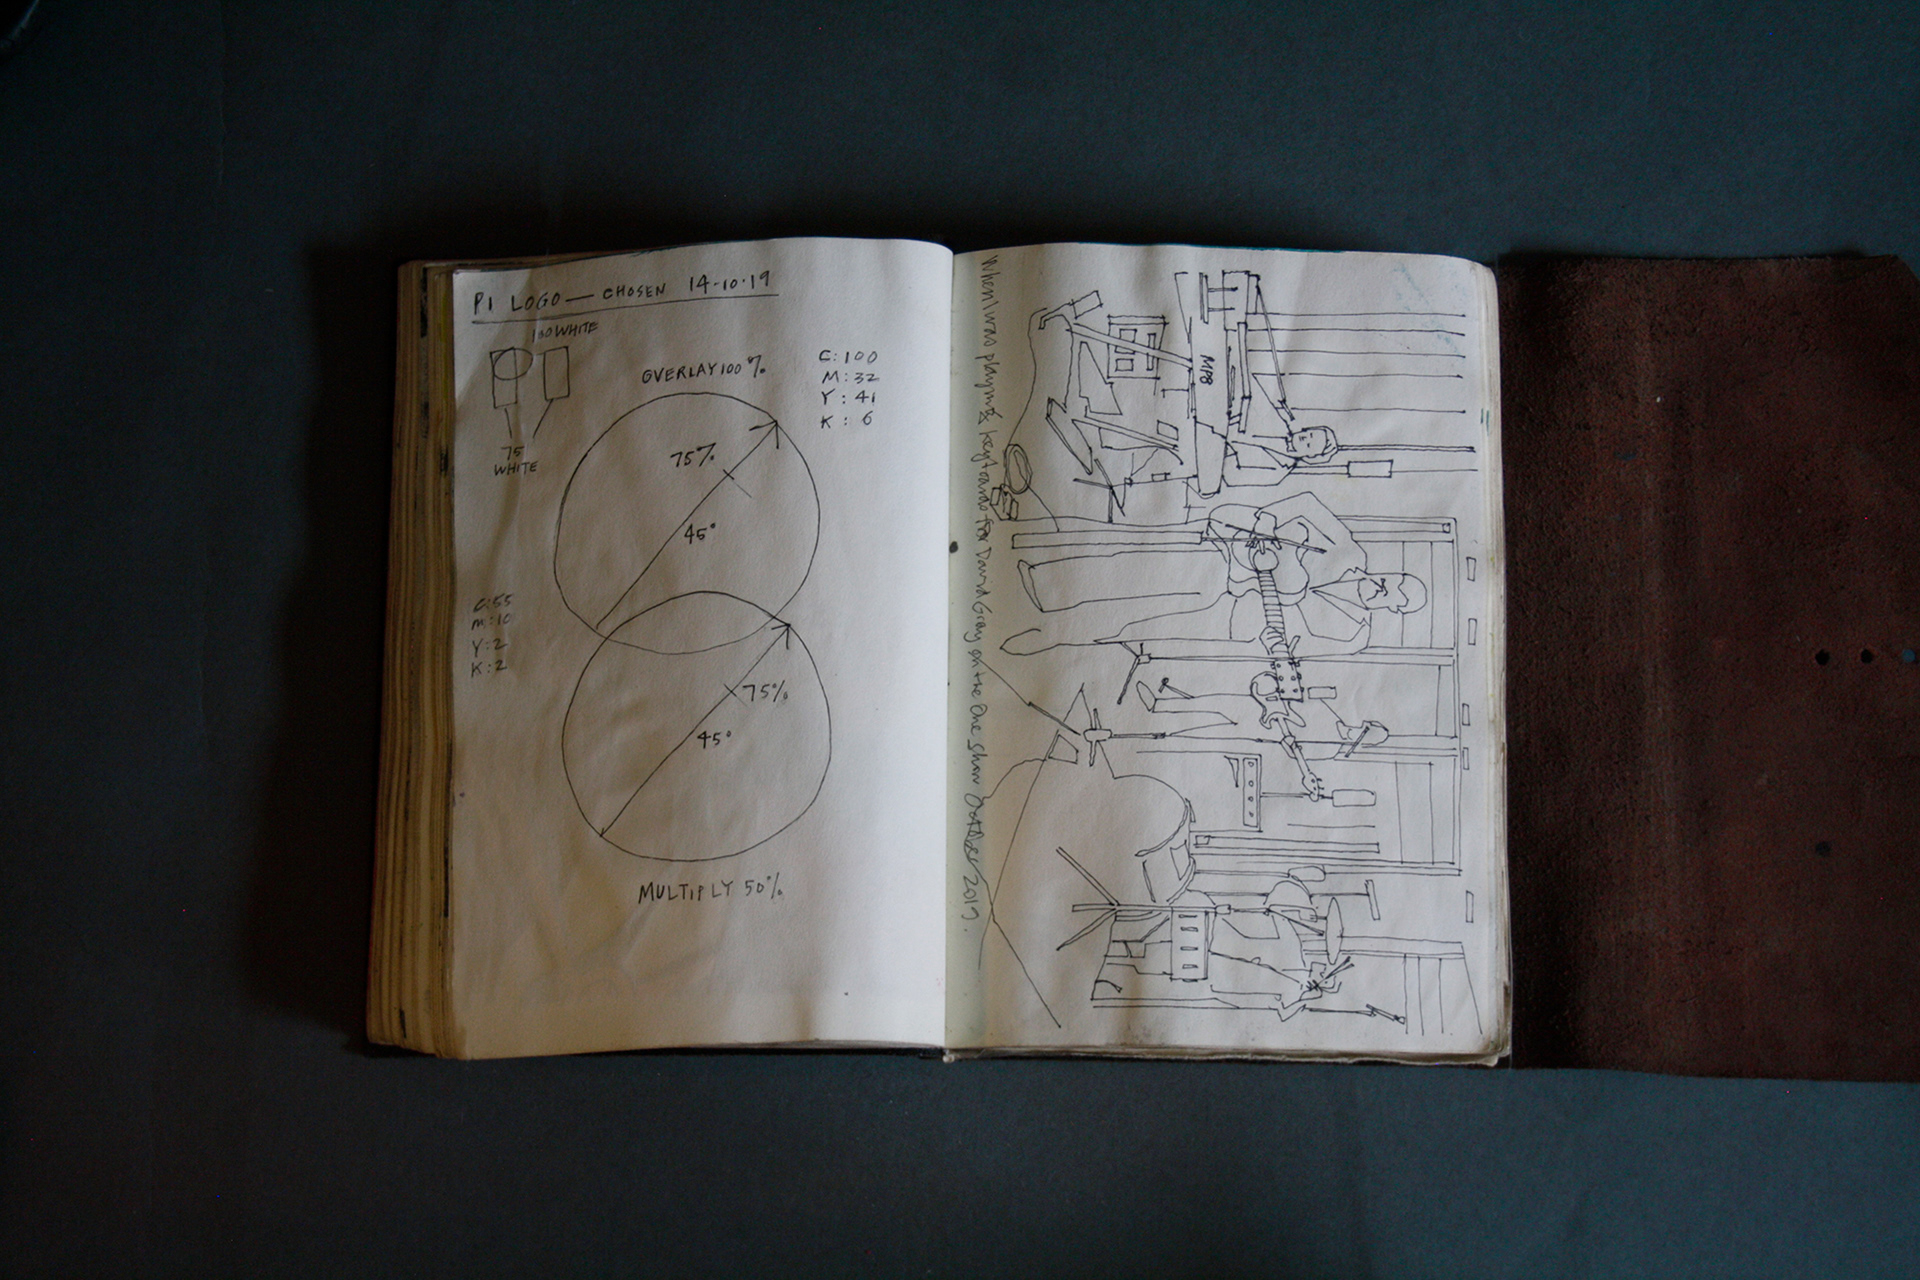 PI LOGO — CHOSEN 14-10-19
100 WHITE
75
WHITE
OVERLAY 100%
C: 100
M: 32
Y: 41
K: 6
75%
45°
C: 55
M: 10
Y: 2
K: 2
75%
45°
MULTIPLY 50%
When I was playing keyboards for David Gray on the One show October 2017.
MP8